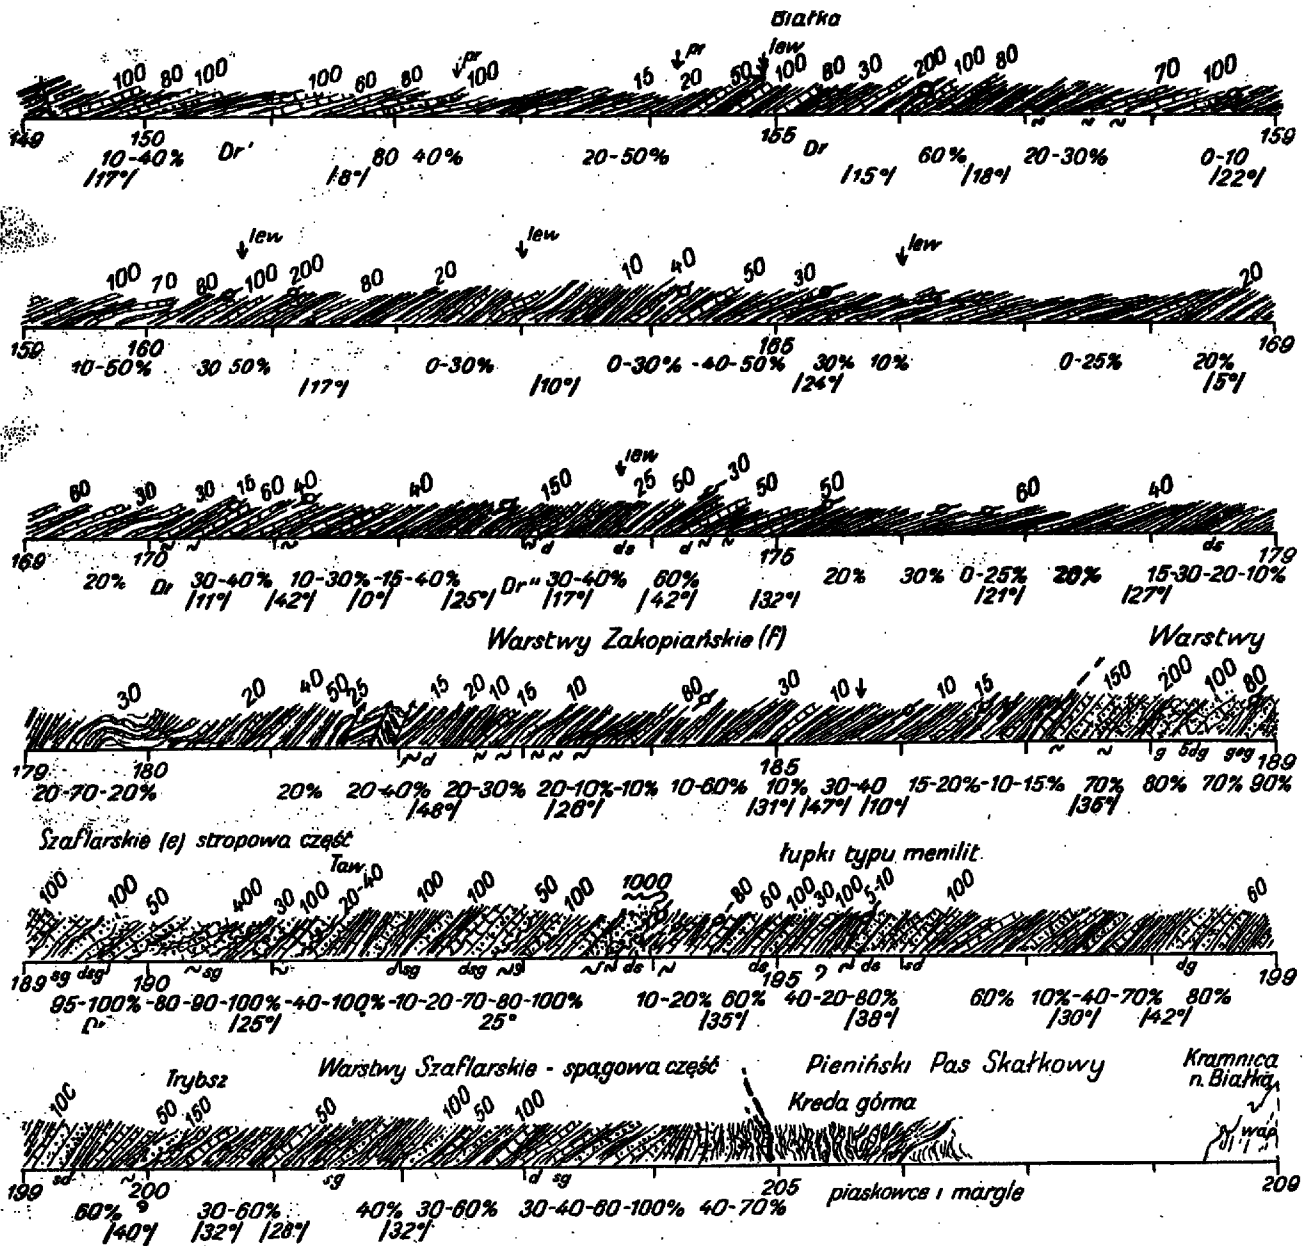 Białka
100 80 100 100 60 80 pr 100 15 pr 20 50 lew 100 80 30 200 100 80 70 100
149 150 155 159
10-40% Dr' 80 40% 20-50% Dr 60% 20-30% 0-10
/17°/ /8°/ /15°/ /18°/ /22°/
lew lew lew
100 70 80 100 200 80 20 10 40 50 30 20
159 160 165 169
10-50% 30 50% 0-30% 0-30% -40-50% 30% 10% 0-25% 20%
/17°/ /10°/ /24°/ /5°/
lew
60 30 30 15 60 40 40 150 25 50 30 50 50 60 40
169 170 ~ ~ ~ ~ d ds d ~ ~ 175 ds 179
20% Dr 30-40% 10-30%-15-40% Dr" 30-40% 60% 20% 30% 0-25% 20% 15-30-20-10%
/11°/ /42°/ /0°/ /25°/ /17°/ /42°/ /32°/ /21°/ /27°/
Warstwy Zakopiańskie (f) Warstwy
30 20 40 50 25 15 20 10 15 10 80 30 10 10 15 150 200 100 80
~ d ~ ~ ~ ~ ~ ~ ~ g sdg geg
179 180 185 189
20-70-20% 20% 20-40% 20-30% 20-10%-10% 10-60% 10% 30-40 15-20%-10-15% 70% 80% 70% 90%
/48°/ /26°/ /31°/ /47°/ /10°/ /35°/
Szaflarskie (e) stropowa część łupki typu menilit.
Taw.
100 100 50 400 30 100 20-40 100 100 50 100 1000 80 60 100 30 100 5-10 100 60
189 sg dsg 190 ~ sg ~ dsg dsg ~g ~ ~ ds ~ ds 195 ? ~ ds sd dg 199
95-100%-80-90-100%-40-100%-10-20-70-80-100% 10-20% 60% 40-20-80% 60% 10%-40-70% 80%
/25°/ 25° /35°/ /38°/ /30°/ /42°/
Trybsz Warstwy Szaflarskie - spągowa część Pieniński Pas Skałkowy Kramnica
n. Białką
Kreda górna
100 50 150 50 100 50 100 wap
199 sd ~ 200 sg d sg 205 piaskowce i margle 209
60% ? 30-60% 40% 30-60% 30-40-60-100% 40-70%
/40°/ /32°/ /28°/ /32°/